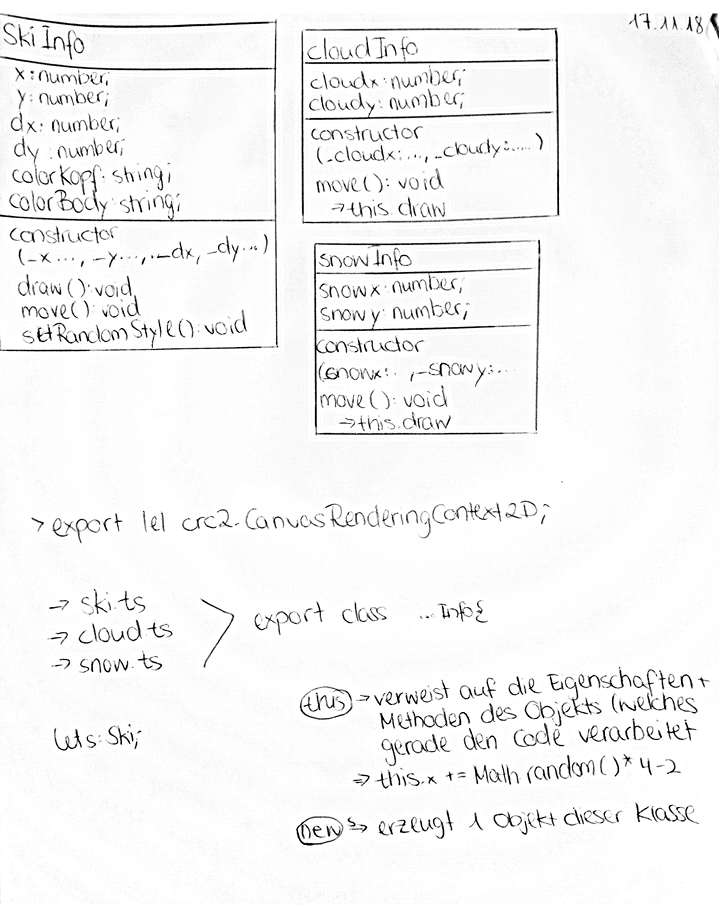 17.11.18
Ski Info
x: number;
y: number;
dx: number;
dy: number;
colorKopf: string;
colorBody: string;
constructor
(_x..., _y...,._dx, _dy...)
draw(): void
move(): void
setRandomStyle(): void
cloudInfo
cloudx: number;
cloudy: number;
constructor
(_cloudx:..., _cloudy:.....)
move(): void
→this.draw
snowInfo
snowx: number;
snowy: number;
constructor
(snowx:. ,_snowy:...
move(): void
→this.draw
> export let crc2: CanvasRenderingContext2D;
→ ski.ts
→ cloud.ts
→ snow.ts
export class ...Info{
let s: Ski;
this → verweist auf die Eigenschaften +
Methoden des Objekts (welches
gerade den Code verarbeitet
⇒ this.x += Math random()* 4-2
new ⇒ erzeugt 1 Objekt dieser Klasse